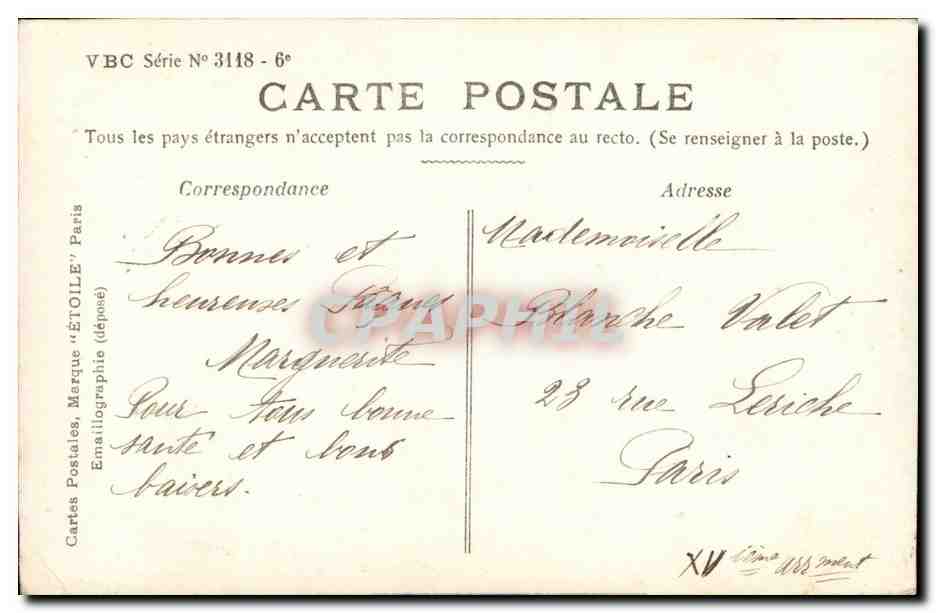 VBC Série Nº 3118 - 6e
CARTE POSTALE
Tous les pays étrangers n'acceptent pas la correspondance au recto. (Se renseigner à la poste.)
Correspondance
Bonnes et
heureuses Pâques
Marguerite
Pour tous bonne
santé et bons
baisers.
Adresse
Mademoiselle
Blanche Valet
23 rue Leriche
Paris
XVième arrment
Cartes Postales, Marque "ÉTOILE" Paris
Emaillographie (déposé)
CPAPHIL.COM